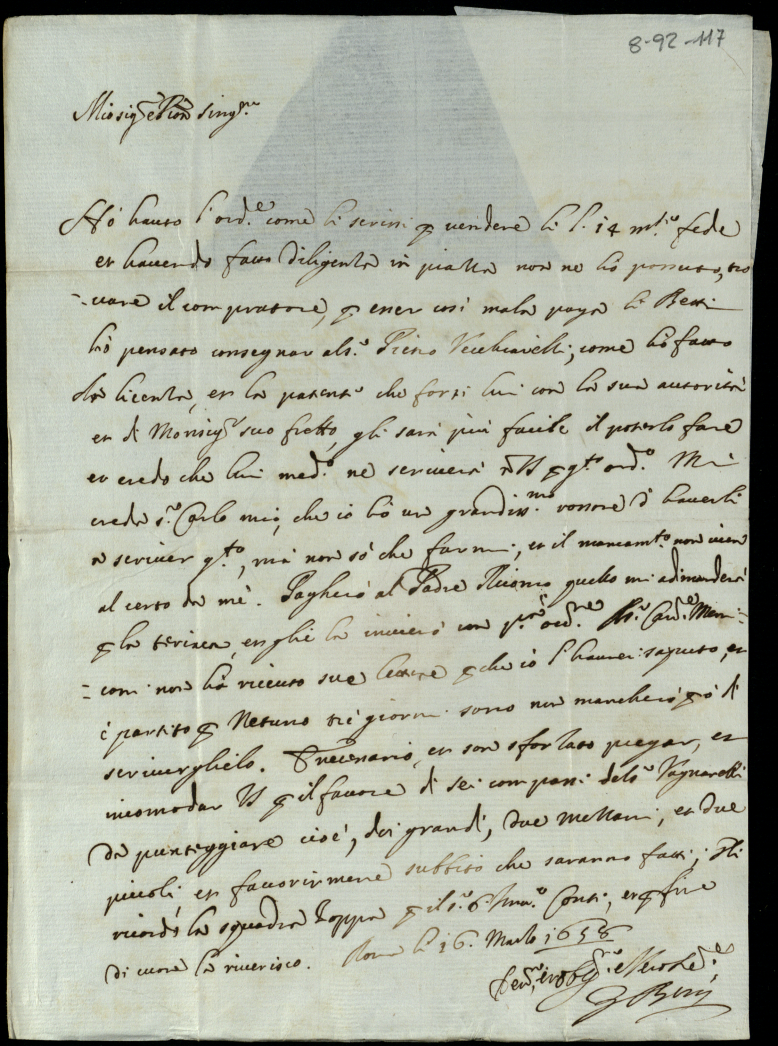 8-92-117
Mio sig.re e Pron sing.re
Hó hauto l'ord.e come li scrissi p vendere li l. 14 m.ti fede
et havendo fatto diligenza in piazza non ne hó possuto, tro
=vare il compratore, p esser cosi mala paga li
hó pensato consegnar al s.r Pietro Vecchiarelli, come hó fatto
la licenza, et la patente che forsi lui con la sua autorità
et di Monsig.r suo fratto, gli sará piú facile il poterlo fare
et credo che lui med.o ne scriverá à VS p q.to ord.o Mi
creda s.r Carlo mio, che io hó un grandiss.mo rossore d'haverli
a scriver q.to, má non só che farmi, et il mancam.to non vien
al certo da mé. Pagheró al Padre quello mi adimanderá
p la teriaca, et gliè la invieró con p.ro ord.ne Il s.r Card.e
non há riceuto sue lettere p che io l'haurei saputo, et
é partito p Netuno tré giorni sono non mancheró p ó di
scriverglielo. É necessario, et son sforzato pregar, et
incomodar VS p il favore di sei compassi del s.r
da punteggiare cioé, doi grandi, due mezzani, et due
piccoli et favorirmene subbito che saranno fatti; Gli
ricordo la squadra zoppa p il s.r Conti, et p fine
di cuore la riverisco. Roma li 16. Marzo 1658